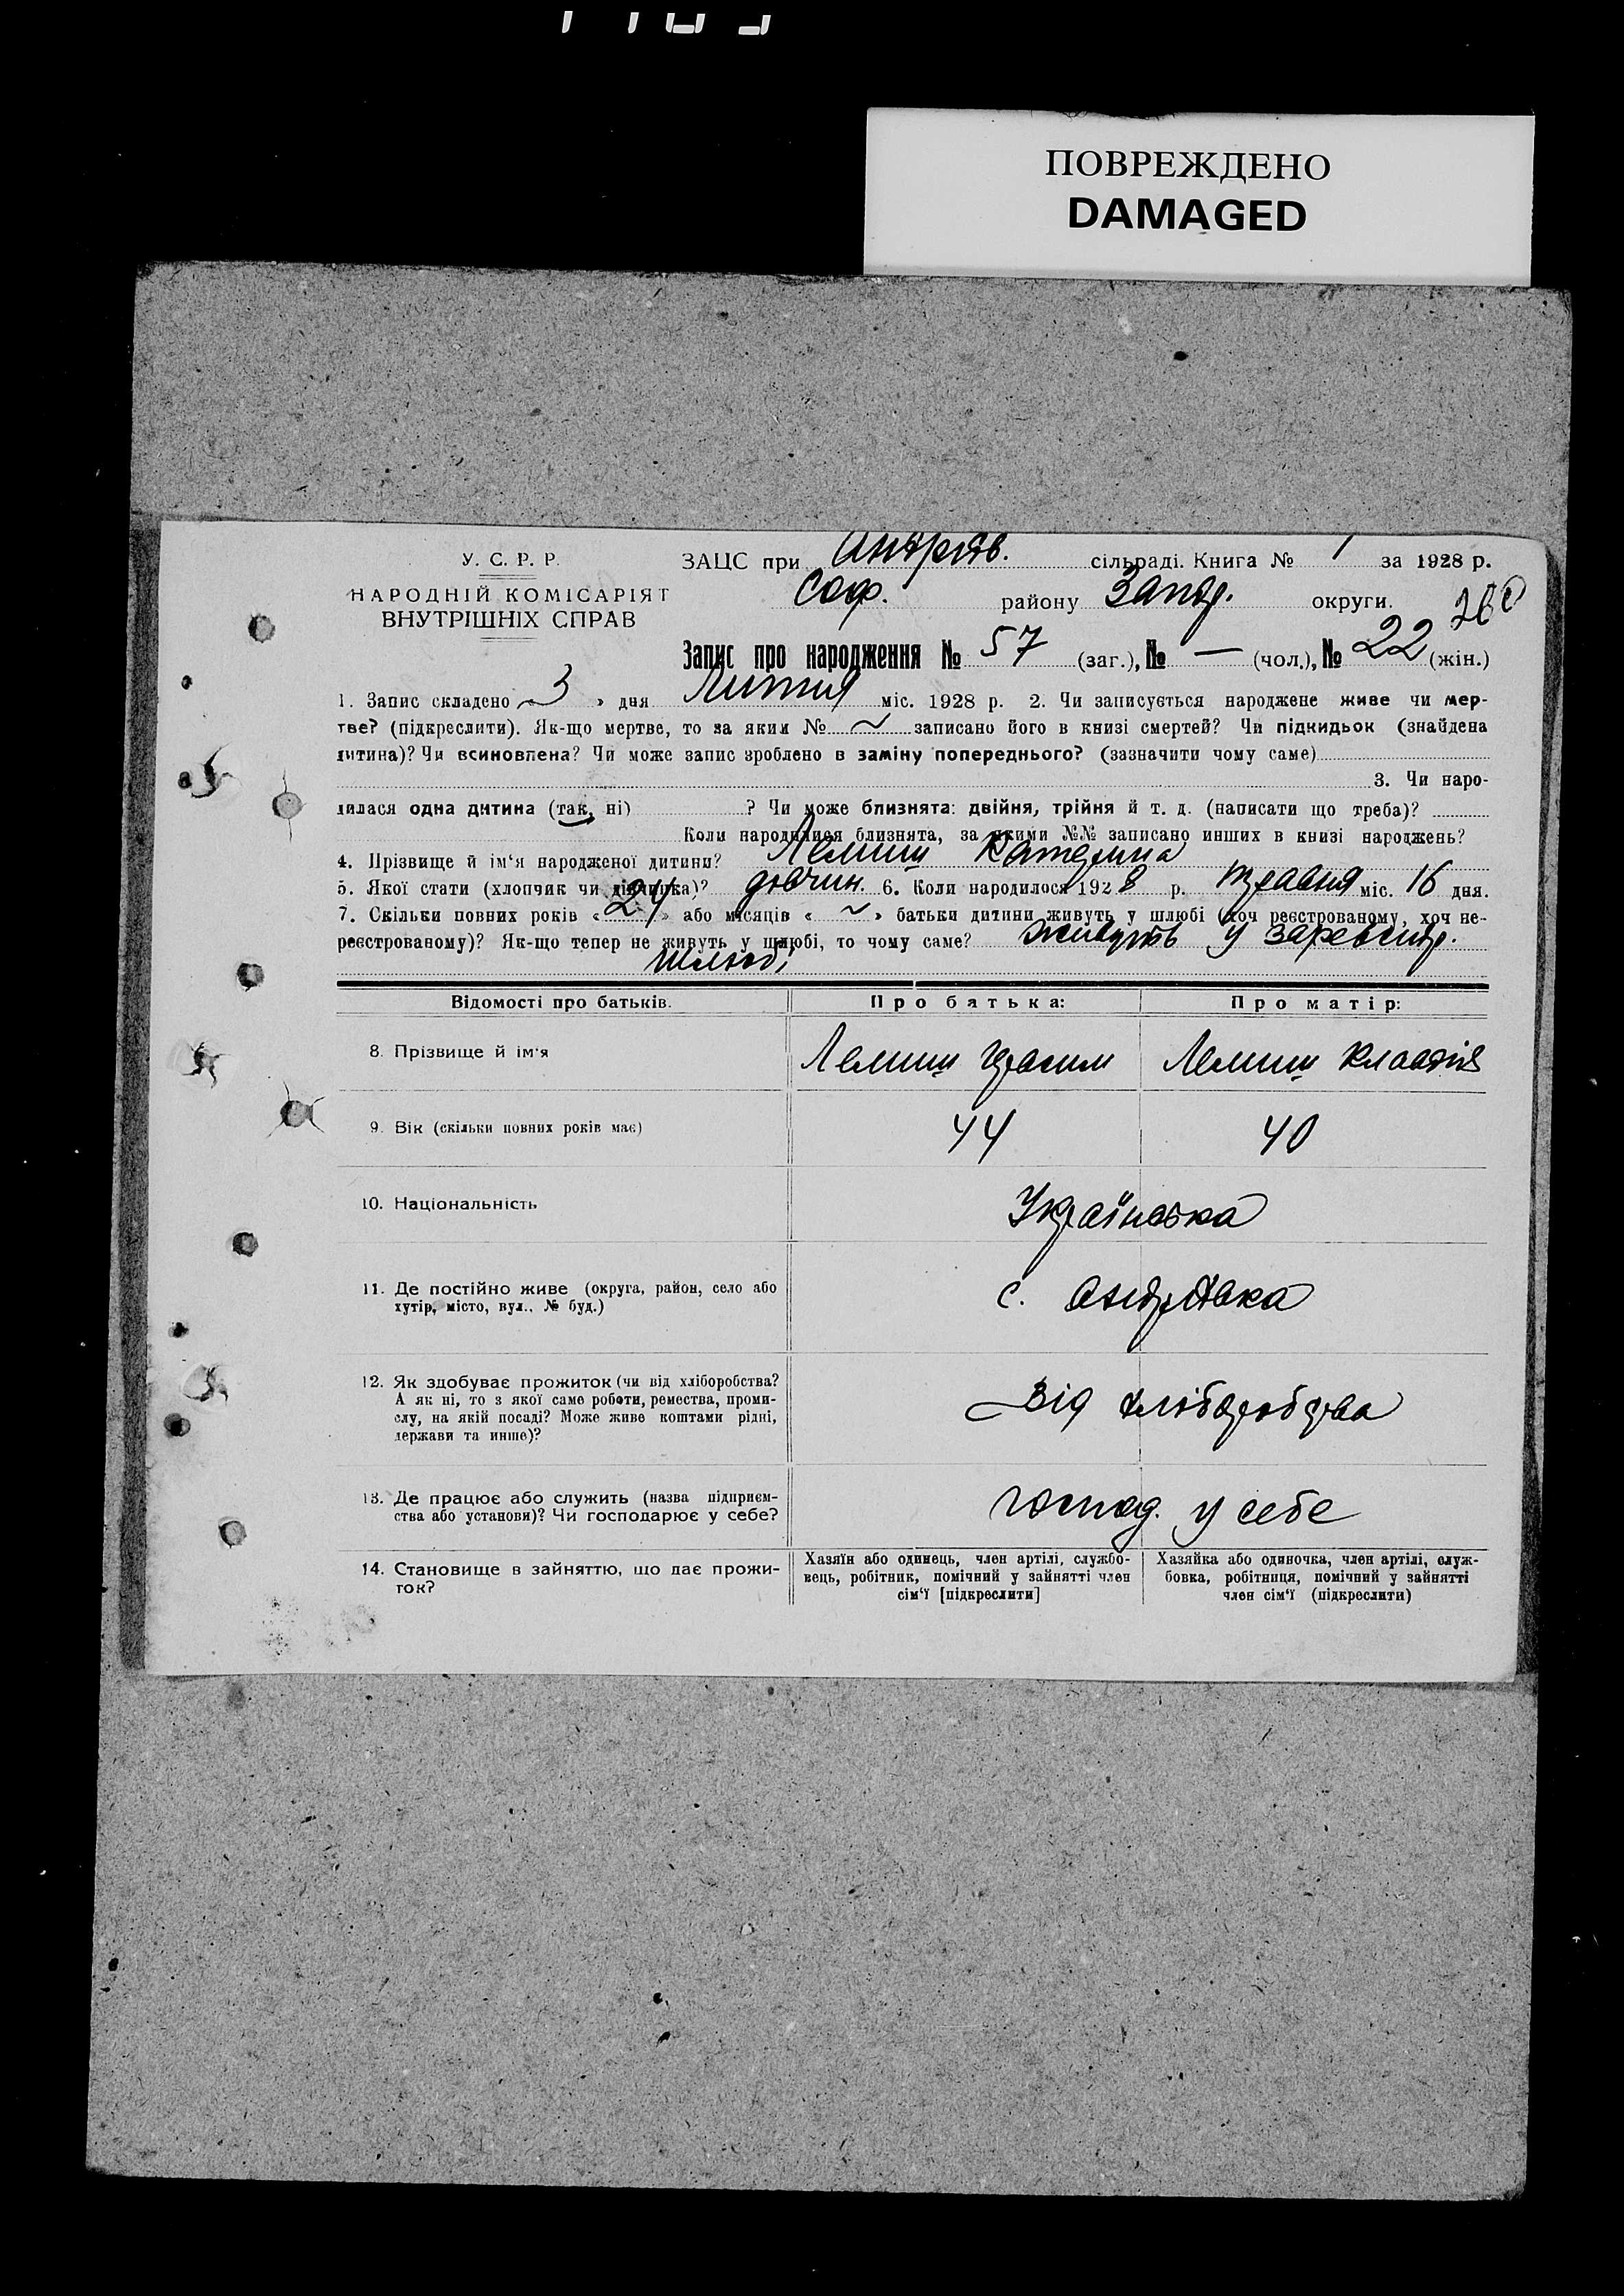 ПОВРЕЖДЕНО
DAMAGED
У. С. Р. Р.
НАРОДНІЙ КОМІСАРІЯТ
ВНУТРІШНІХ СПРАВ
ЗАЦС при Андріїв. сільраді. Книга № 1 за 1928 р.
Соф. району Запор. округи.
Запис про народження № 57 (заг.), № — (чол.), № 22 (жін.)
1. Запис складено « 3 » дня Липня міс. 1928 р. 2. Чи записується народжене живе чи мер-
тве? (підкреслити). Як-що мертве, то за яким № ~ записано його в книзі смертей? Чи підкидьок (знайдена
дитина)? Чи всиновлена? Чи може запис зроблено в заміну попереднього? (зазначити чому саме)
3. Чи наро-
дилася одна дитина (так, ні) ? Чи може близнята: двійня, трійня й т. д. (написати що треба)?
Коли народилися близнята, за якими №№ записано инших в книзі народжень?
4. Прізвище й ім'я народженої дитини? Лемиш Катерина
5. Якої стати (хлопчик чи дівчинка)? дівчин. 6. Коли народилося 1928 р. травня міс. 16 дня.
7. Скільки повних років « 24 » або місяців « ~ » батьки дитини живуть у шлюбі (хоч реєстрованому, хоч не-
реєстрованому)? Як-що тепер не живуть у шлюбі, то чому саме? живуть у зареєстр.
шлюбі
Відомості про батьків. Про батька: Про матір:
8. Прізвище й ім'я Лемиш Герасим Лемиш Клавдія
9. Вік (скільки повних років має) 44 40
10. Національність Українська
11. Де постійно живе (округа, район, село або
хутір, місто, вул.. № буд.) с. Андріївка
12. Як здобуває прожиток (чи від хліборобства?
А як ні, то з якої саме роботи, ремества, проми-
слу, на якій посаді? Може живе коштами рідні,
держави та инше)? Від хліборобства
13. Де працює або служить (назва підприєм-
ства або установи)? Чи господарює у себе? господ. у себе
14. Становище в зайняттю, що дає прожи-
ток?
Хазяїн або одинець, член артілі, службо-
вець, робітник, помічний у зайнятті член
сім'ї [підкреслити]
Хазяйка або одиночка, член артілі, служ-
бовка, робітниця, помічний у зайнятті
член сім'ї (підкреслити)